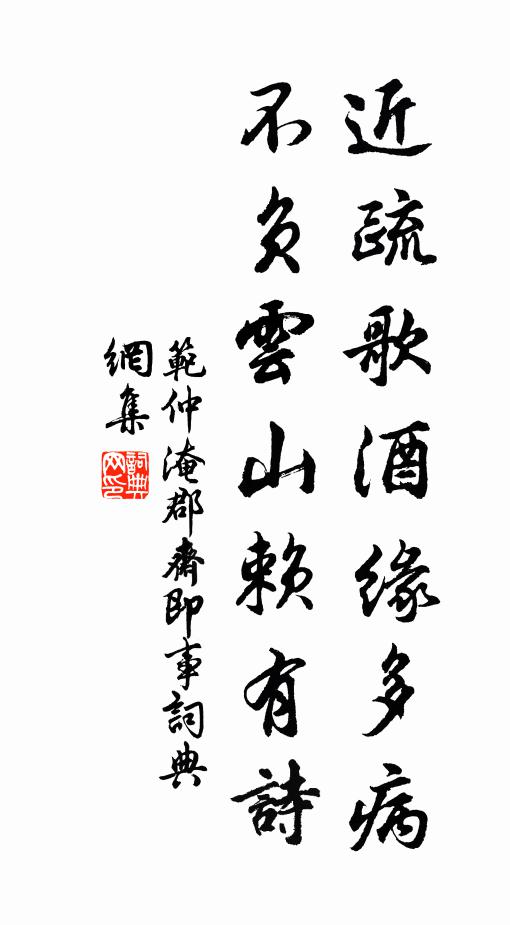 近疏歌酒緣多病
不負雲山賴有詩
範仲淹郡齋即事詞典
網集
詞典
网印